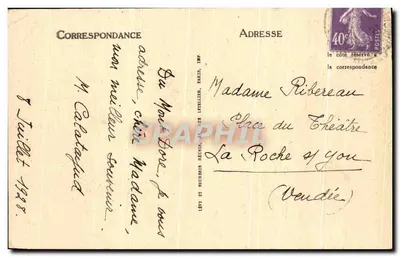 CORRESPONDANCE
ADRESSE
40c
POSTES
le côté réservé à
la correspondance
Du Mont Dore, je vous
adresse, chère Madame,
mon meilleur souvenir.
M. Calatafud
8 Juillet 1928
Madame Ribereau
Place du Théâtre
La Roche s/ Yon
(Vendée)